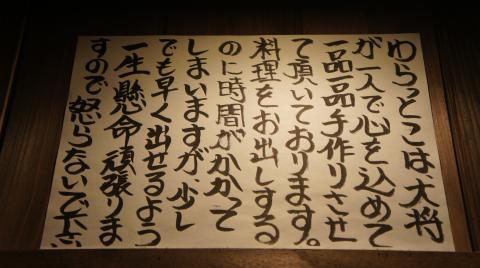 わらっとこは、大将
が一人で心を込めて
一品一品手作りさせ
て頂いております。
料理をお出しする
のに時間がかかって
しまいますが、少し
でも早く出せるよう
一生懸命頑張りま
すので怒らないで下さい